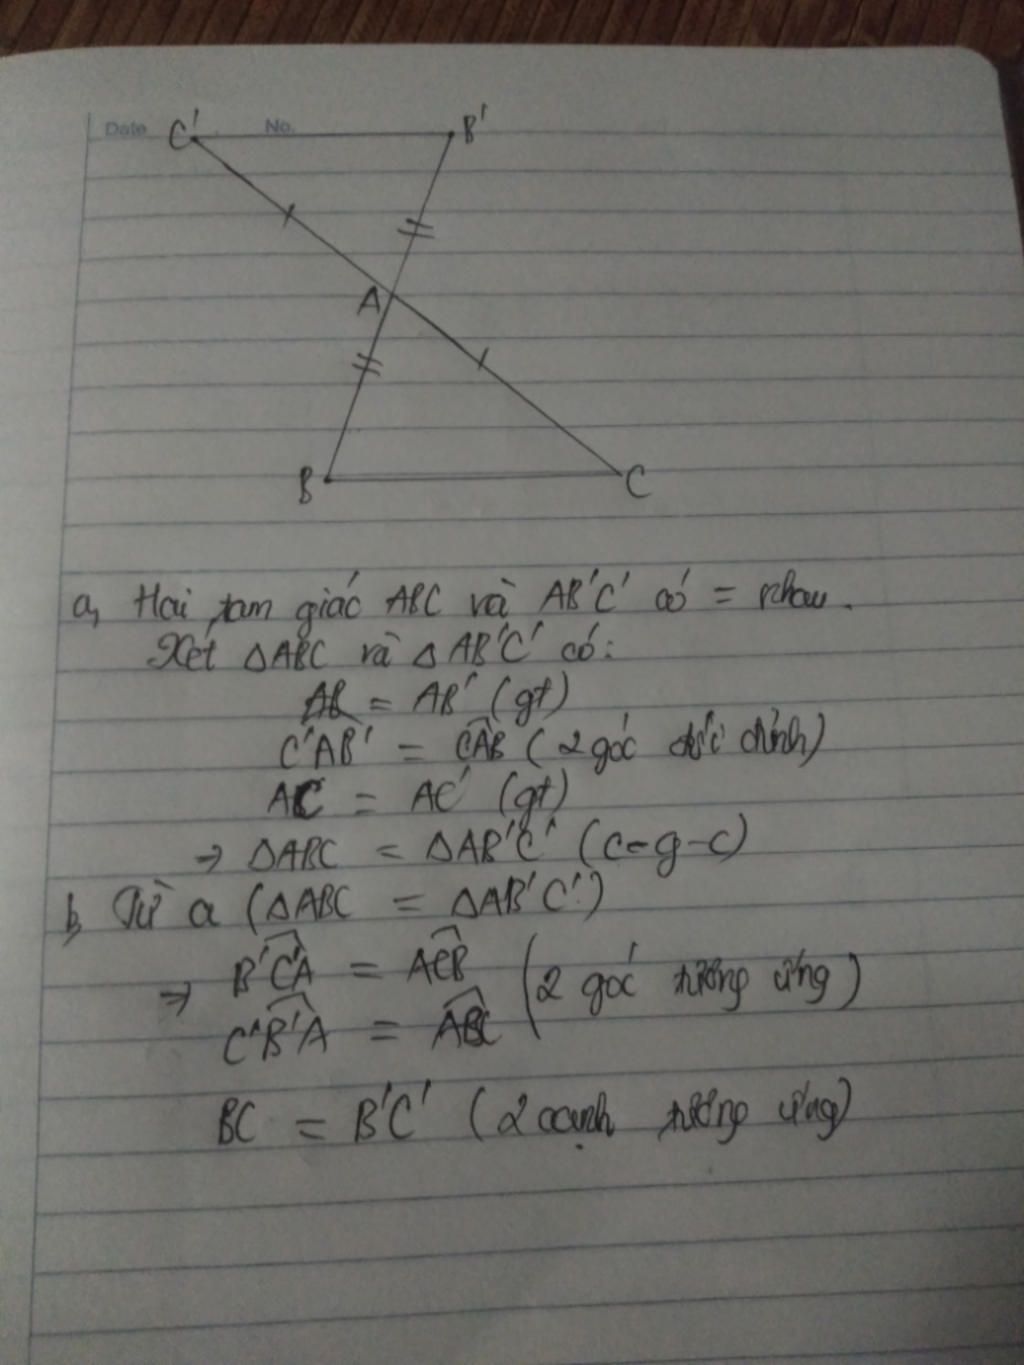 Date
No.
C'
B'
A
B
C
a, Hai tam giác ABC và AB'C' có = nhau.
Xét ΔABC và ΔAB'C' có:
AB = AB' (gt)
C'AB' = CAB (2 góc đối đỉnh)
AC = AC' (gt)
⇒ ΔABC = ΔAB'C' (c-g-c)
b, Từ a (ΔABC = ΔAB'C')
⇒ B'C'A = ACB (2 góc tương ứng)
C'B'A = ABC
BC = B'C' (2 cạnh tương ứng)